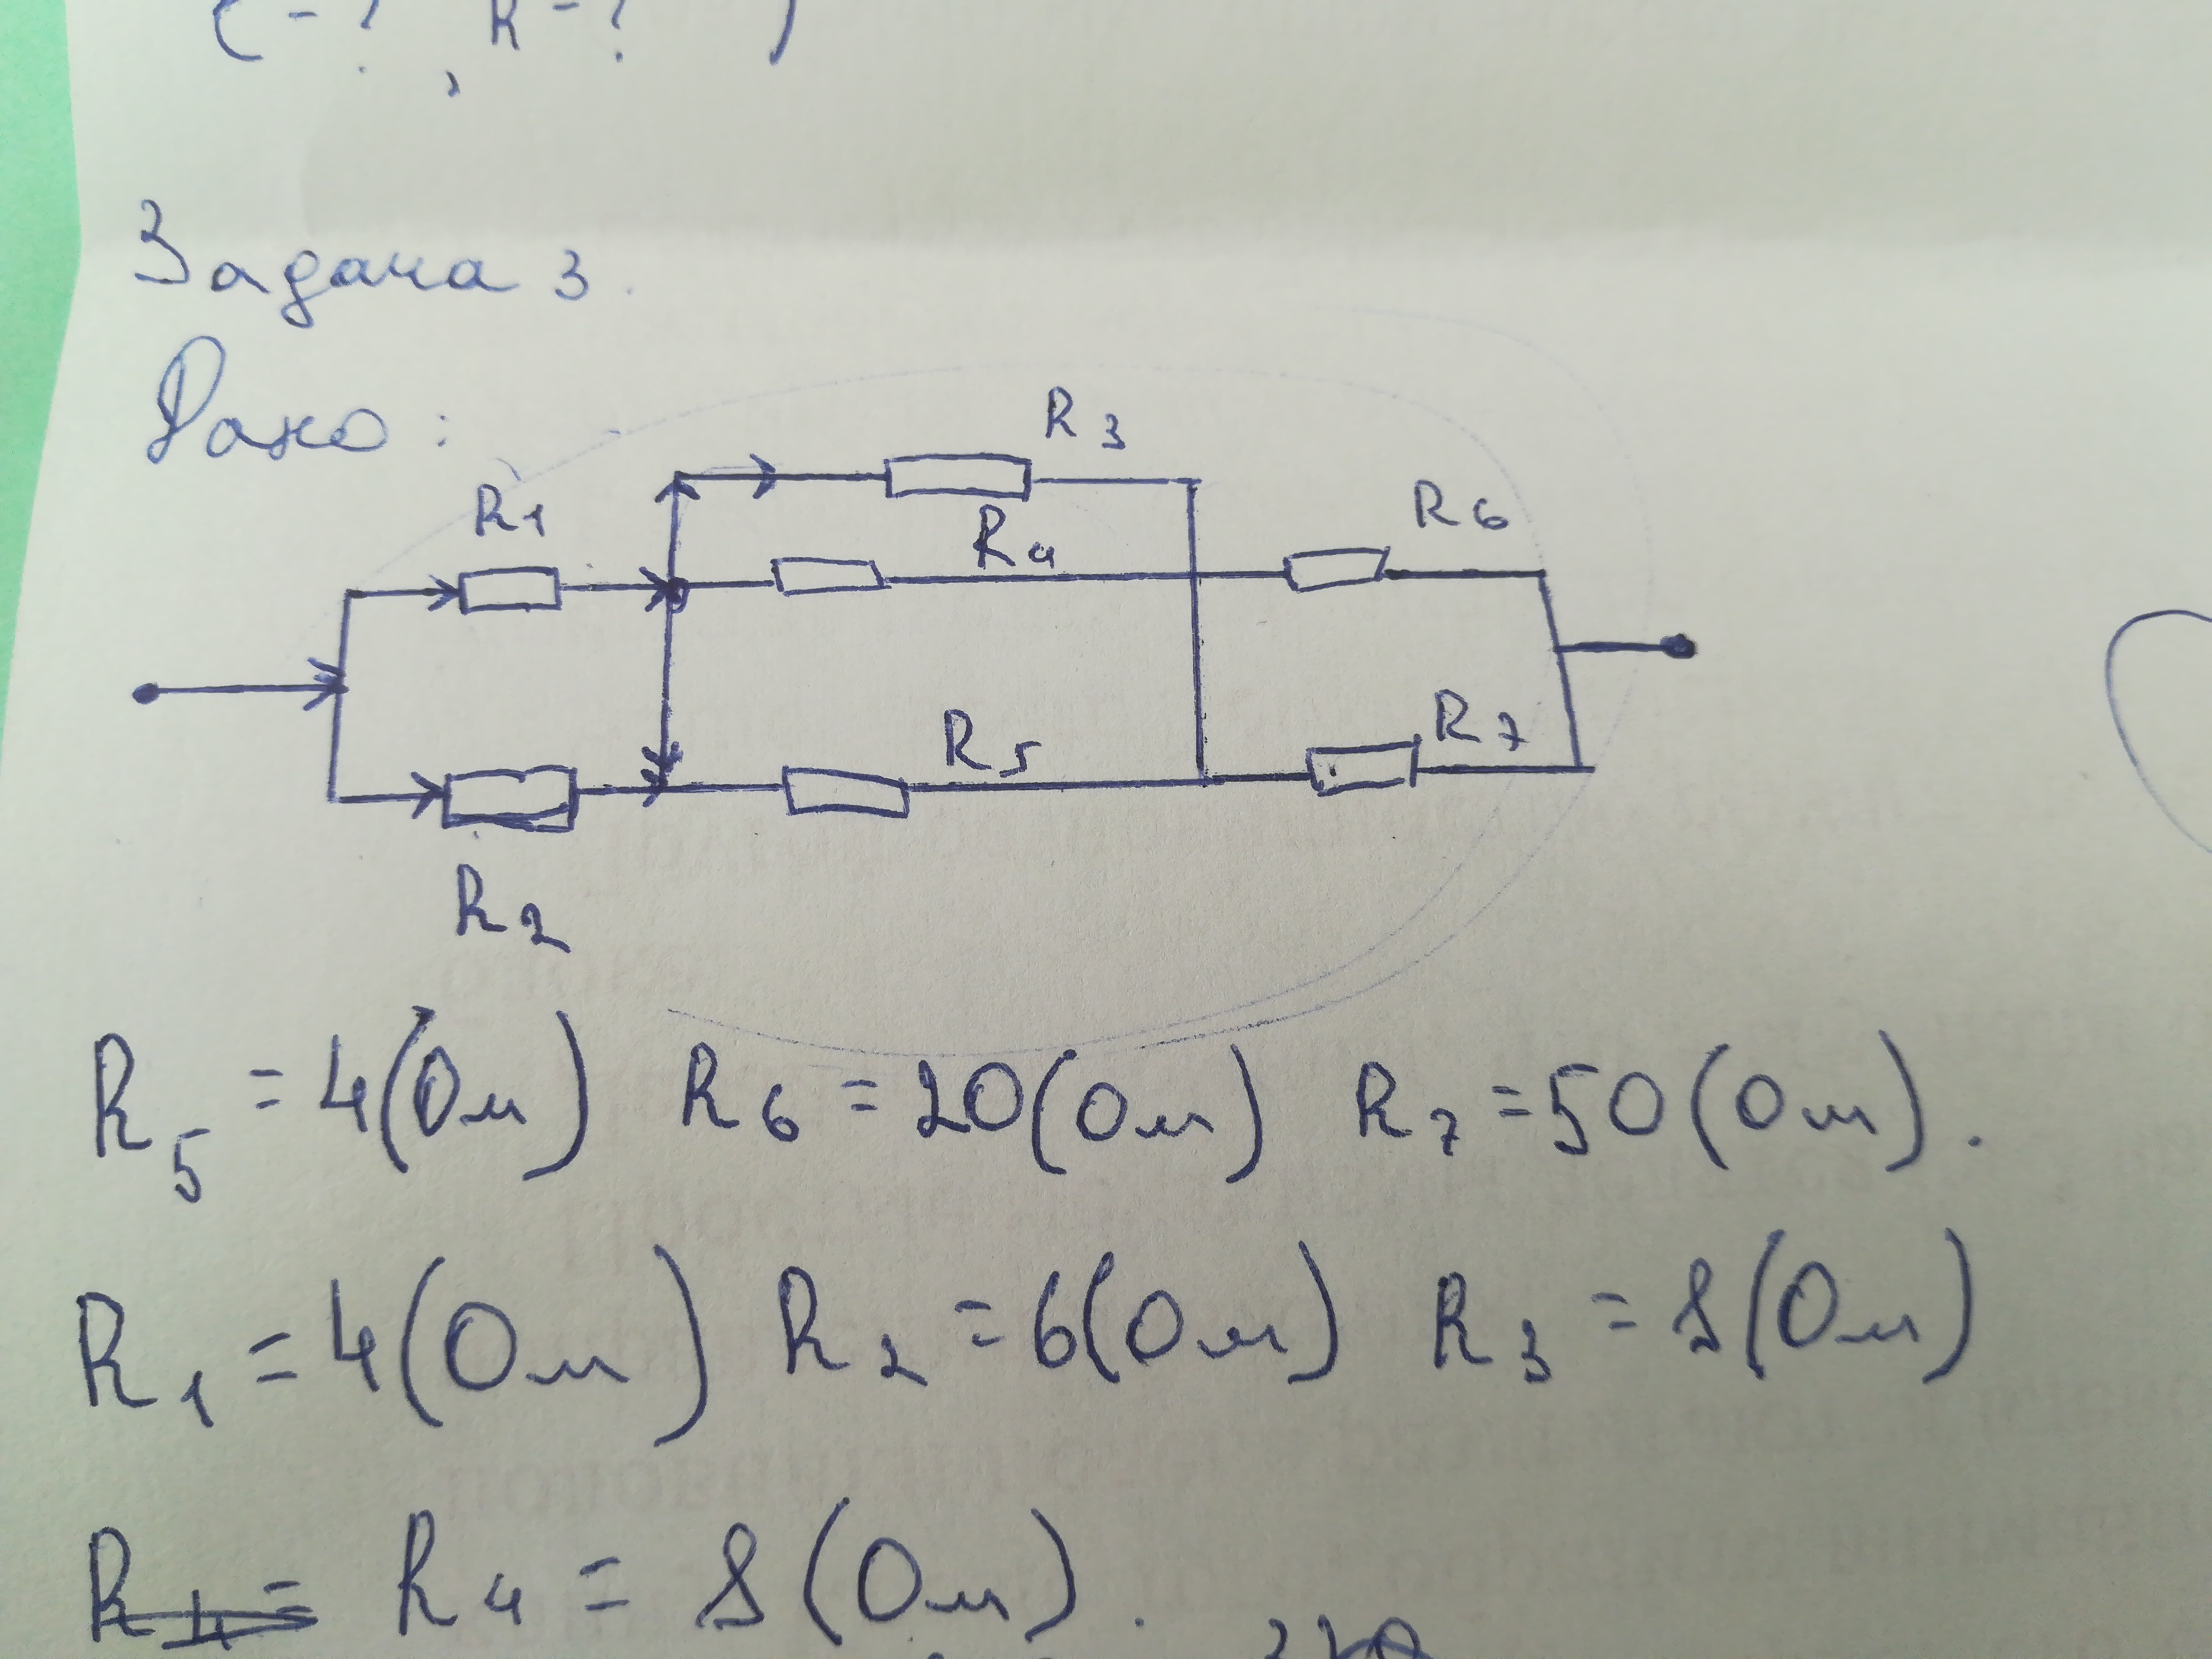 (-? , R-? )
Задача 3.
Дано:
R3
R1
R4
R6
R5
R7
R2
R5 = 4(Ом) R6 = 20(Ом) R7 = 50(Ом).
R1 = 4(Ом) R2 = 6(Ом) R3 = 8(Ом)
R4 = 8(Ом).